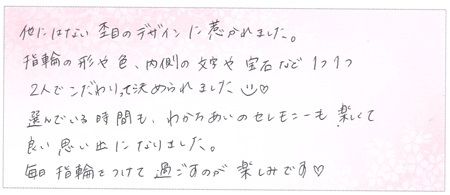 他にはない杢目のデザインに惹かれました。
指輪の形や色、内側の文字や宝石など1つ1つ
2人でこだわって決められました☺♡
選んでいる時間も、わかちあいのセレモニーも楽しくて
良い思い出になりました。
毎日指輪をつけて過ごすのが楽しみです♡